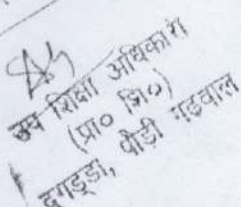 उप शिक्षा अधिकारी
(प्रा० शि०)
दुगड्डा, पौड़ी गढ़वाल